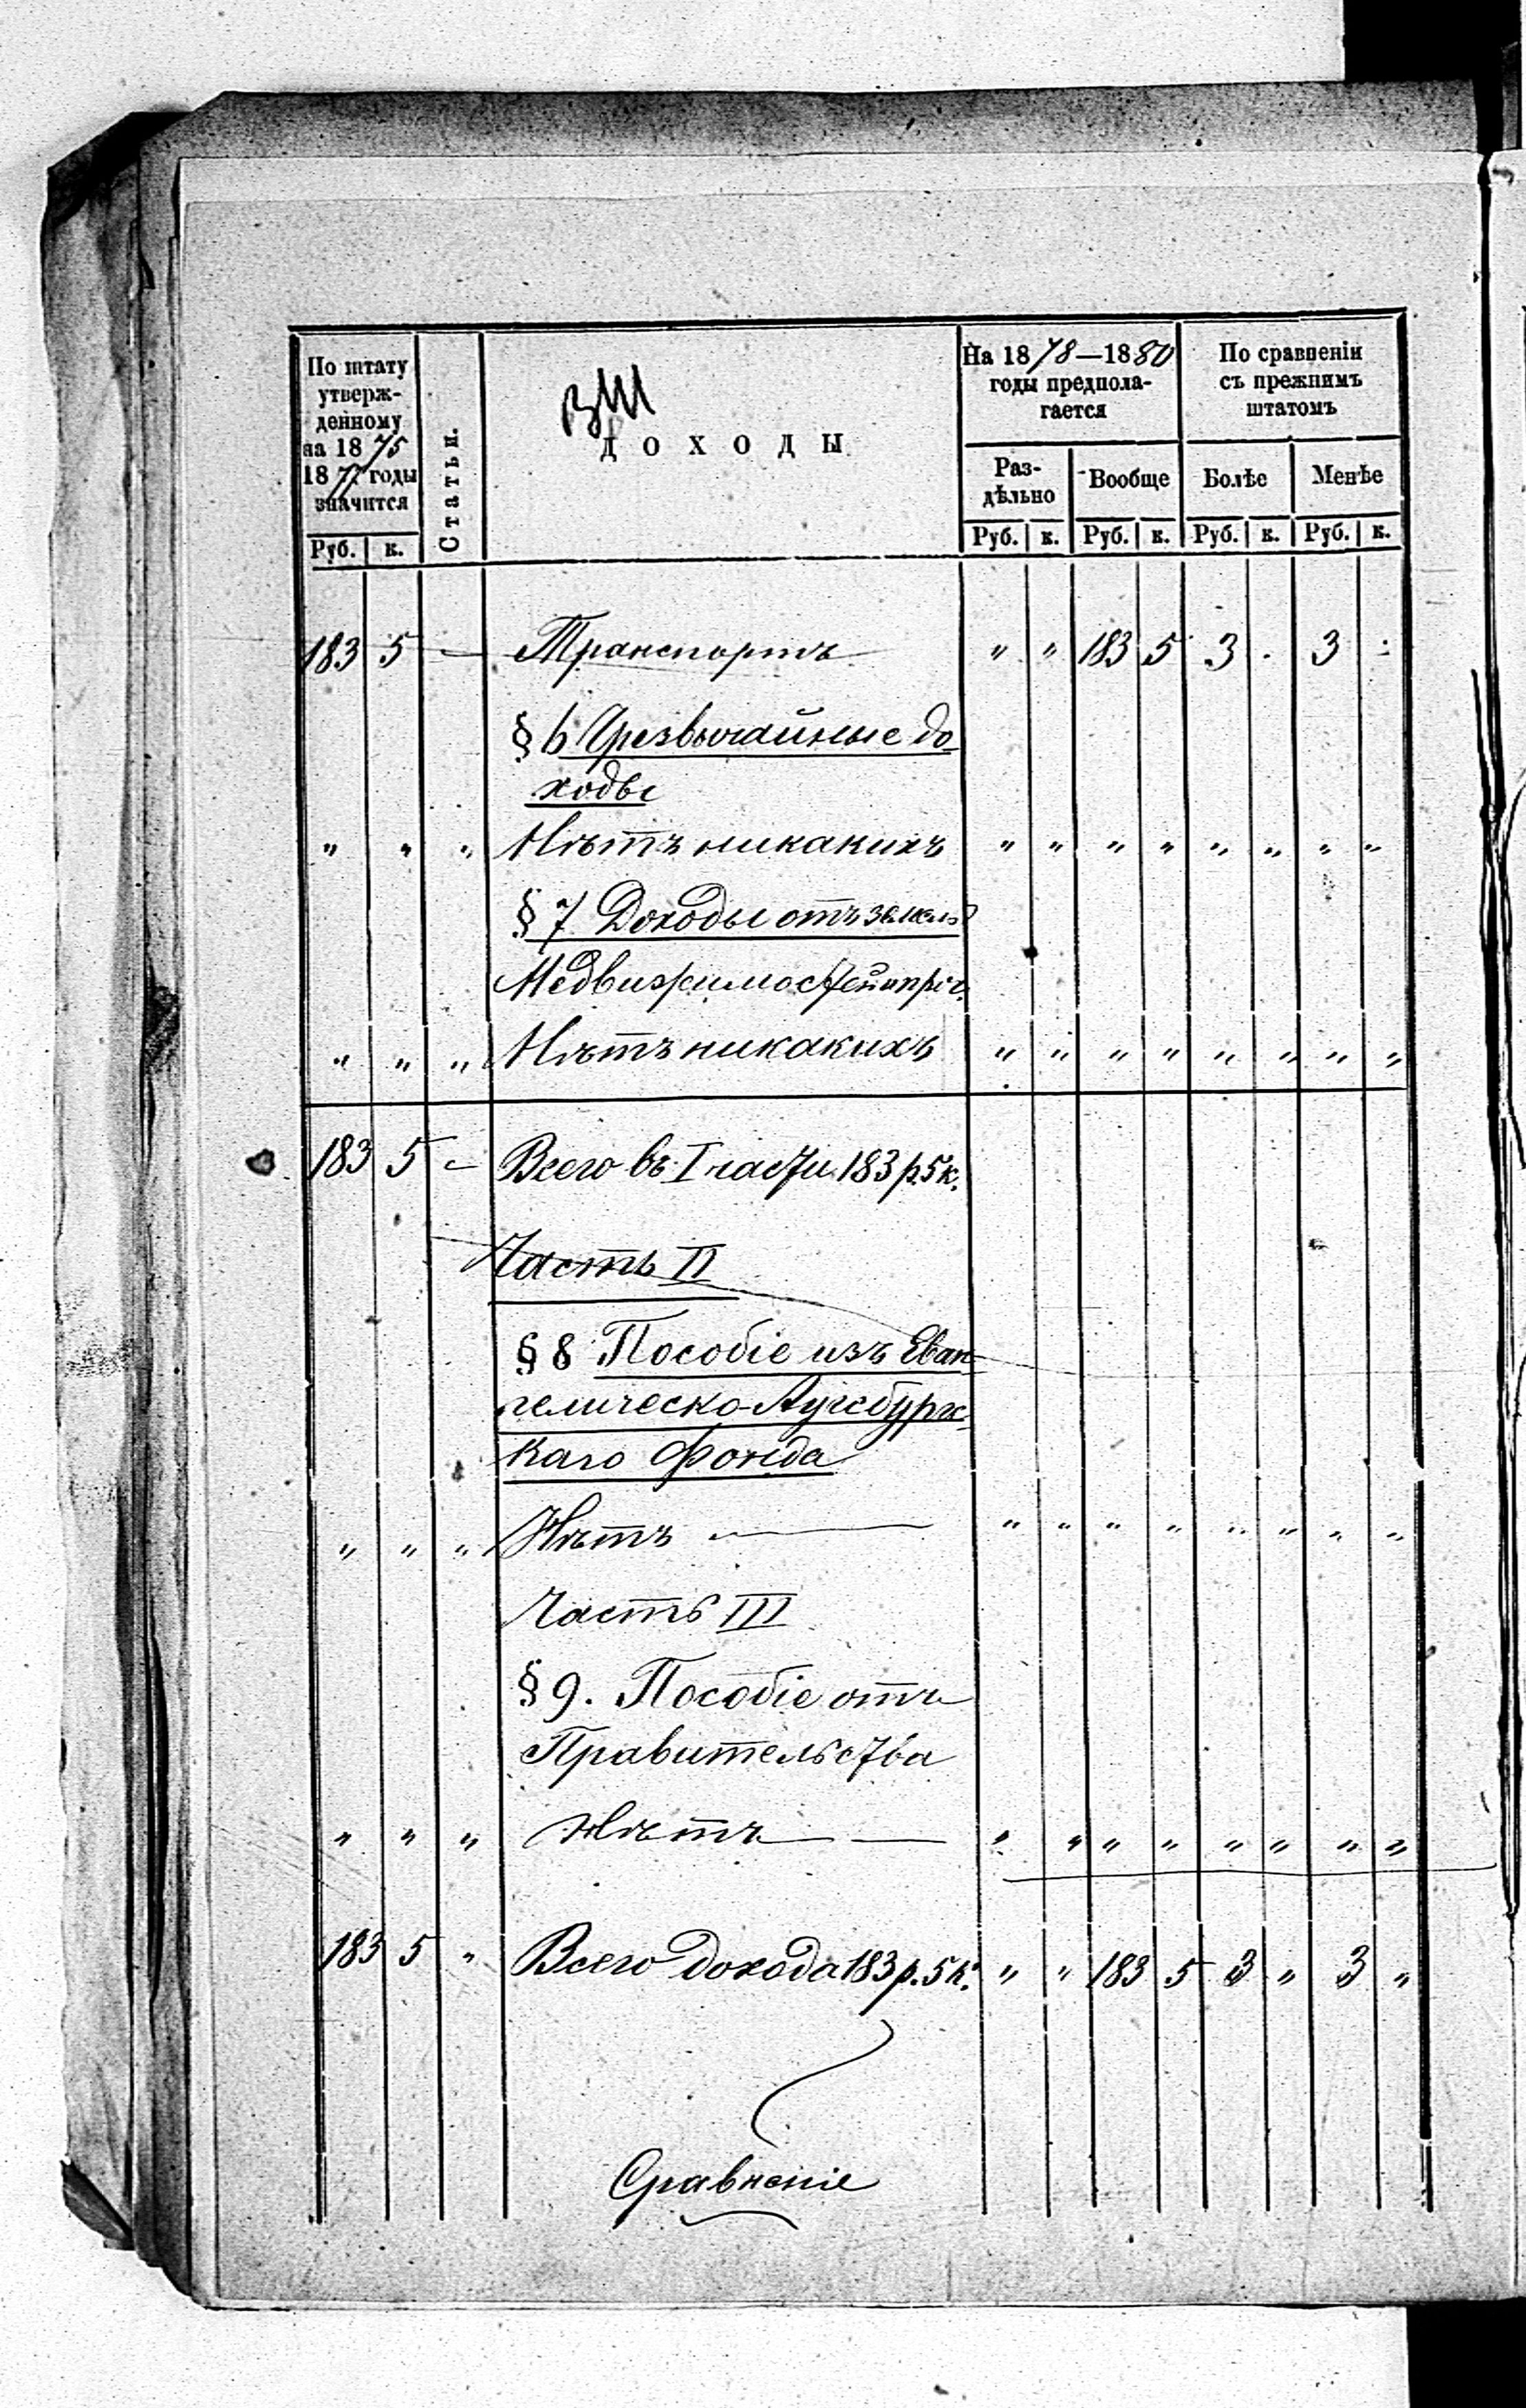 По штату утверж-
денному
на 1875
1877 годы
значится
Руб. к.
Статьи.
ДОХОДЫ
На 1878—1880
годы предпола-
гается
Раз-
дѣльно
Вообще
Руб. к. Руб. к.
По сравненiи
съ прежнимъ
штатомъ
Болѣе
Менѣе
Руб. к. Руб. к.
183 5 — Транспортъ " " 183 5 3 . 3 :
§ 6 Чрезвычайные до-
ходы
" " " Нѣтъ никакихъ " " " " " " " "
§ 7 Доходы отъ земель
Недвижимостей и проч.
" " " Нѣтъ никакихъ " " " " " " " "
183 5 — Всего въ I части 183 р. 5 к.
Часть II
§ 8 Пособіе изъ Еван-
гелическо-Аугсбургс-
каго Фонда
" " " Нѣтъ — " " " " " " " "
Часть III
§ 9. Пособіе отъ
Правительства
" " " Нѣтъ — — " " " " " " " "
183 5 " Всего дохода 183 р. 5 к. " " 183 5 3 " 3 "
Сравненіе